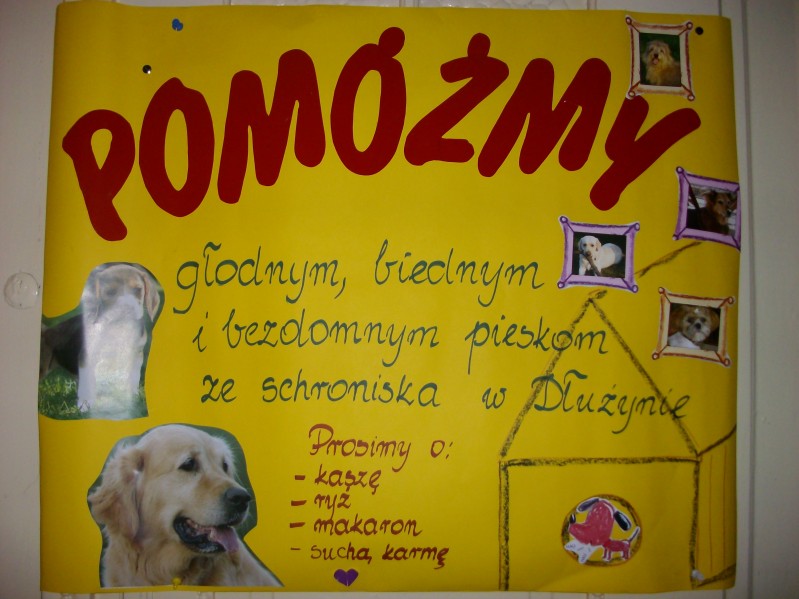 POMÓŻMY
głodnym, biednym
i bezdomnym pieskom
ze schroniska w Dłużynie
Prosimy o:
- kaszę
- ryż
- makaron
- suchą karmę